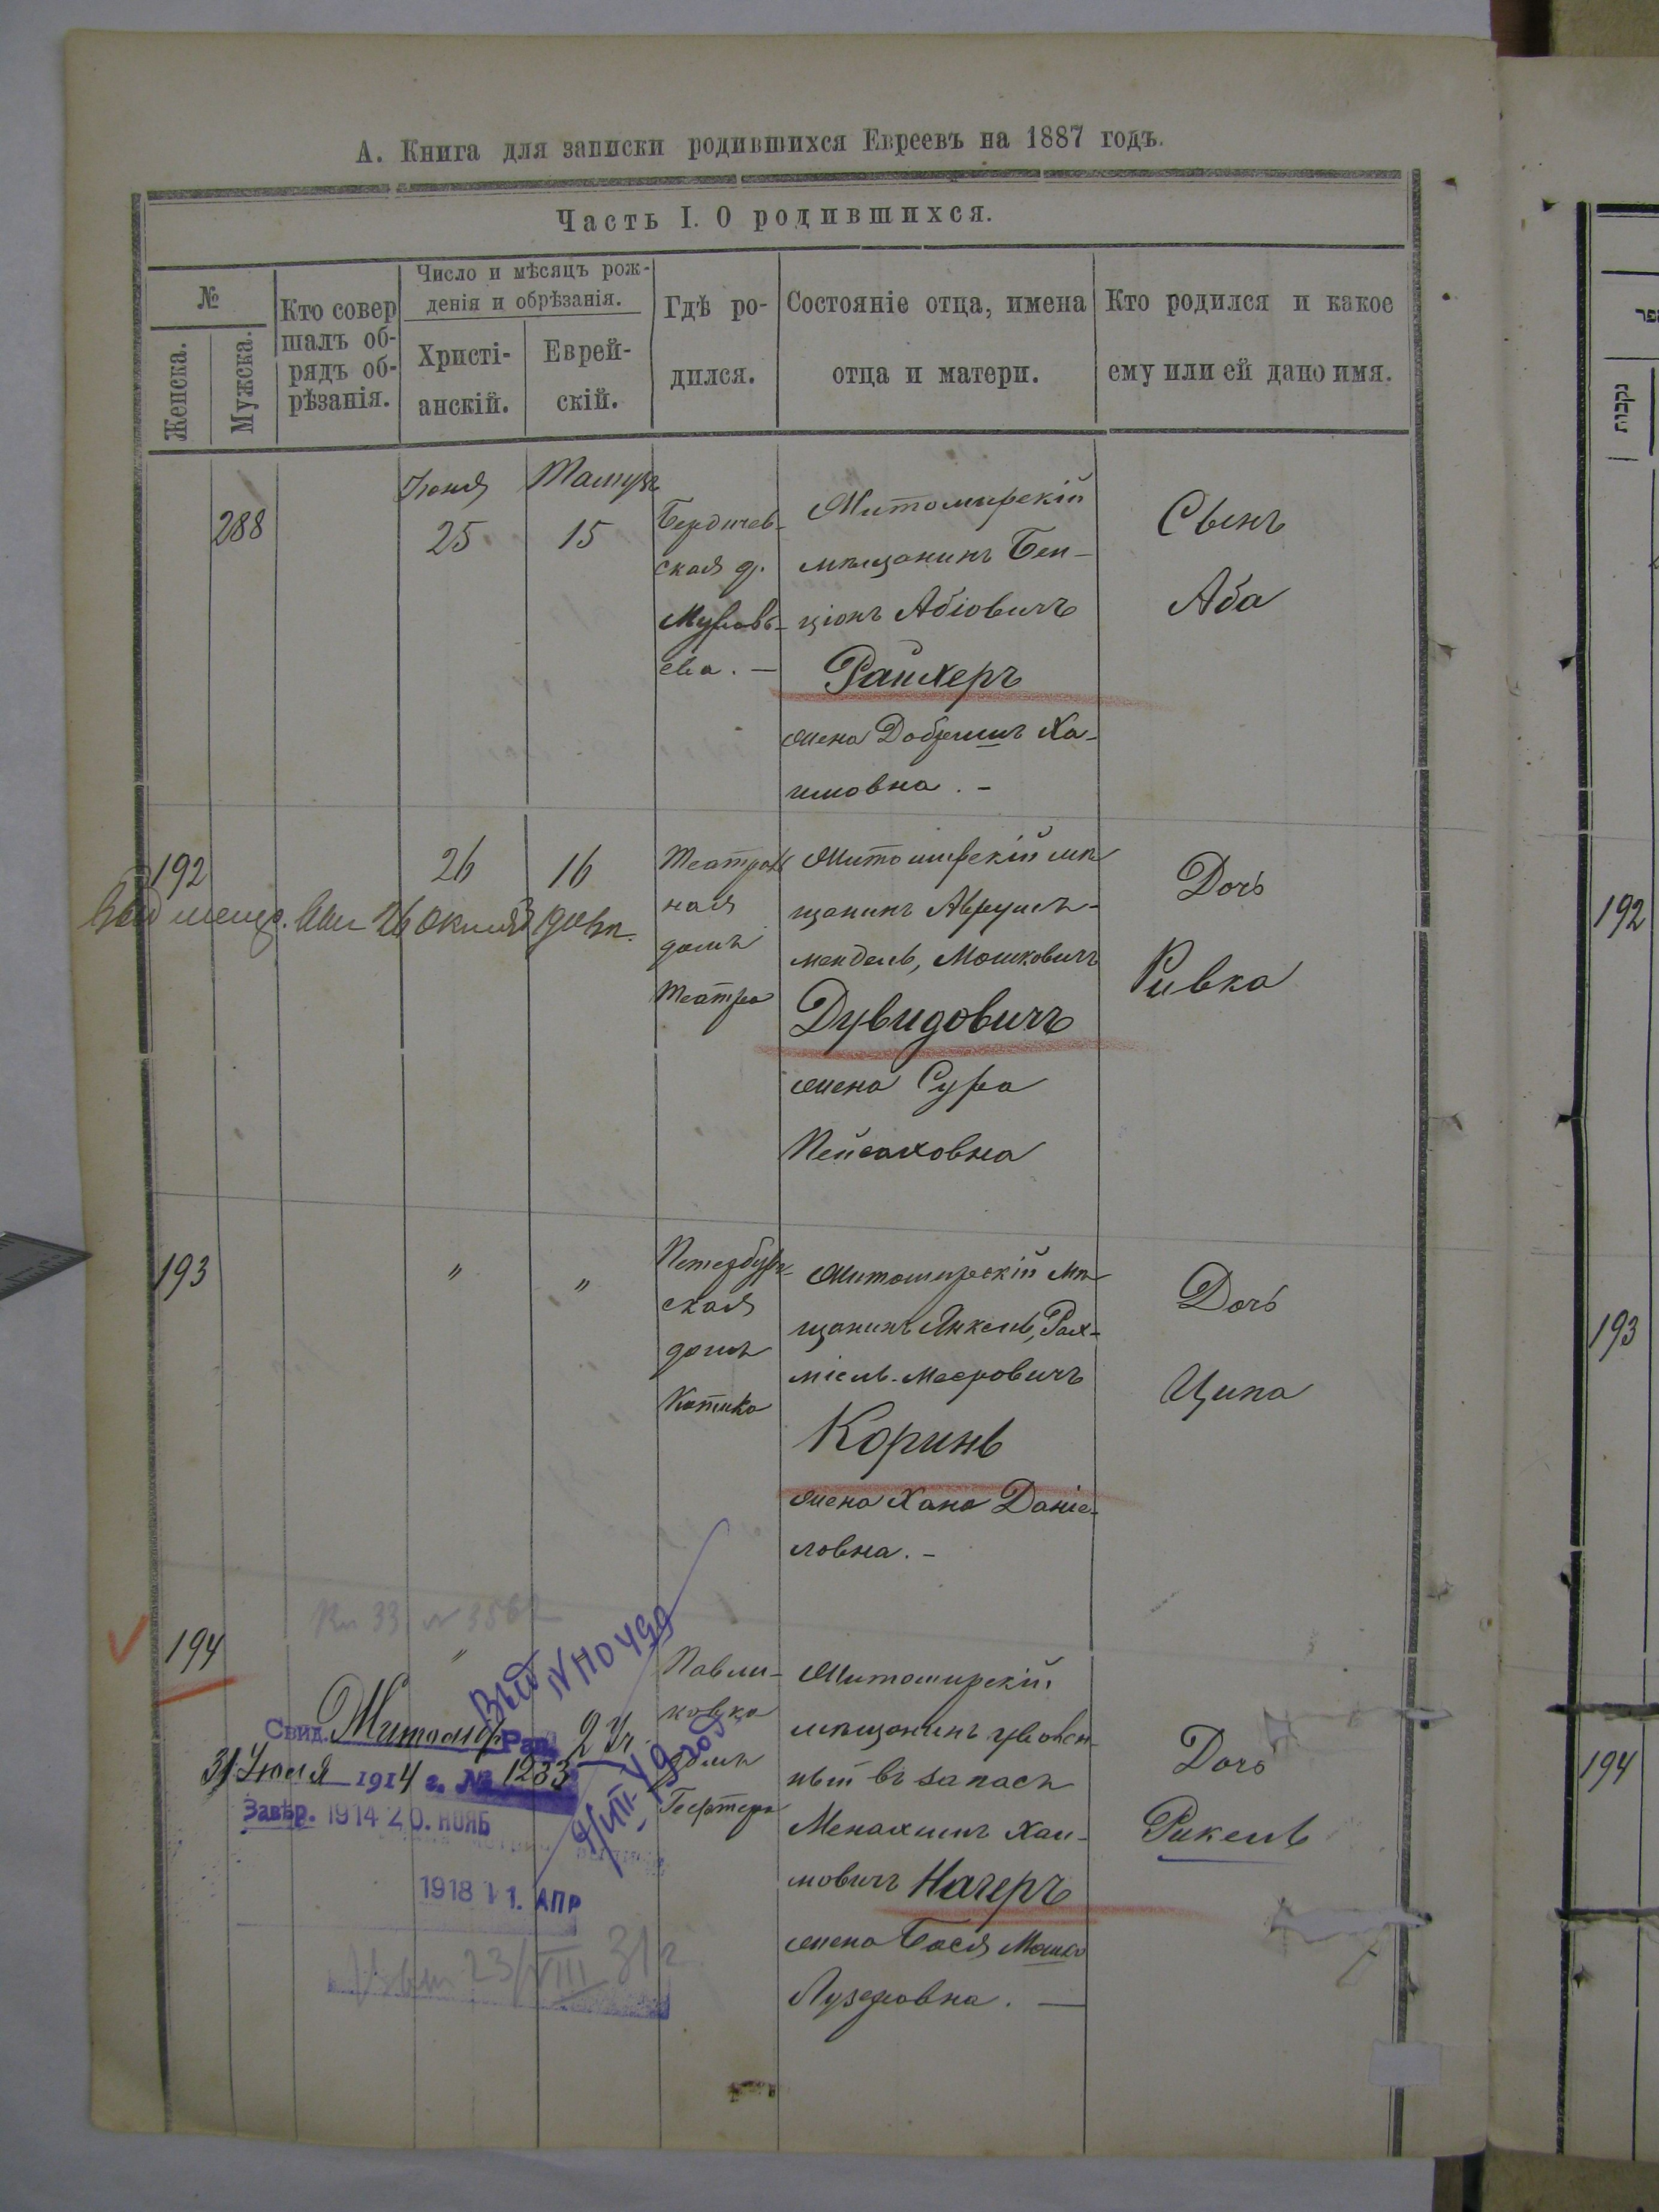 А. Книга для записки родившихся Евреевъ на 1887 годъ.
Часть I. О родившихся.
№
Женска.
Мужска.
Кто совер
шалъ об-
рядъ об-
рѣзанія.
Число и мѣсяцъ рож-
денія и обрѣзанія.
Христі-
анскій.
Еврей-
скій.
Гдѣ ро-
дился.
Состояніе отца, имена
отца и матери.
Кто родился и какое
ему или ей дано имя.
נקבות
288
Іюня
25
Тамузъ
15
Бердичев-
ская д.
Муравь-
ева. —
Житомирскій
мѣщанинъ Бен-
ціонъ Абіовичъ
Райхеръ
жена Добришъ Ха-
имовна. –
Сынъ
Аба
192
26
16
Театраль
ная
домъ
Театра
Житомирскій мѣ
щанинъ Аврумъ-
мендель, Мошковичъ
Дувидовичъ
жена Сура
Пейсаховна
Дочь
Ривка
192
26
193
"
"
Петербург-
ская
домъ
Котика
Житомирскій мѣ
щанинъ Янкель, Рах-
міель-Мееровичъ
Коринь
жена Хана Даніе-
ловна. –
Дочь
Ципа
193
Кн 33 № 3562
194
"
Павли-
ковка
домъ
Житомирскій
мѣщанинъ уволен-
ный въ запасъ
Менахимъ Хаи-
мовичъ Нагеръ
жена Бася Мошко
Лузеровна. —
Дочь
Рикель
194
Выд
Свид. Житомир Рав.
31 Іюля 1914 г. № 1233
Завѣр. 1914 20. НОЯБ
1918 11. АПР
23/VIII 31 г.